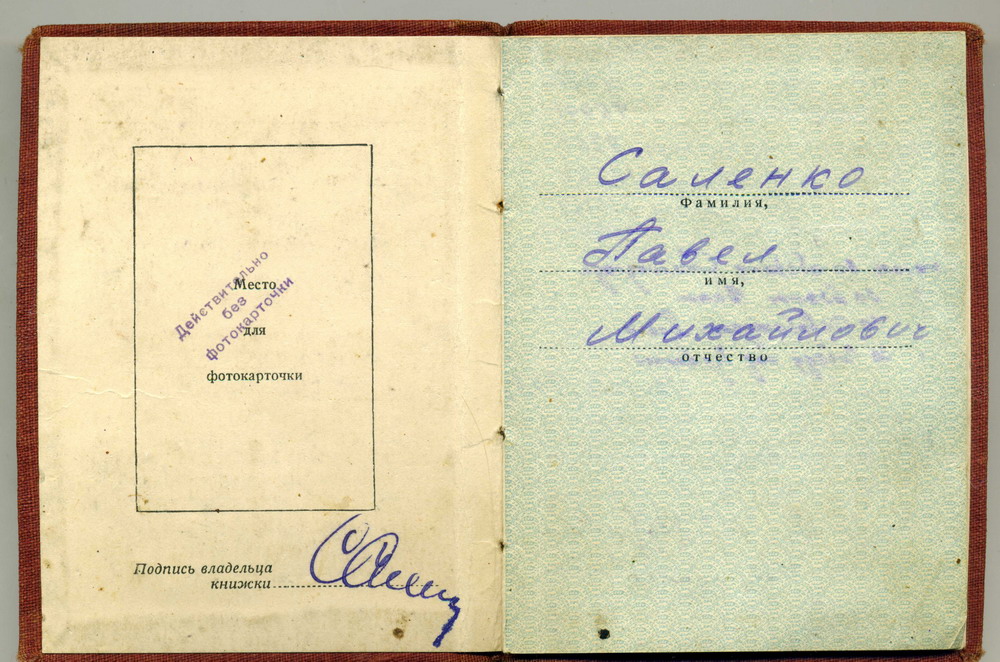 Место
для
фотокарточки
Действительно
без
фотокарточки
Подпись владельца
книжки
Саленко
Фамилия,
Павел
имя,
Михайлович
отчество